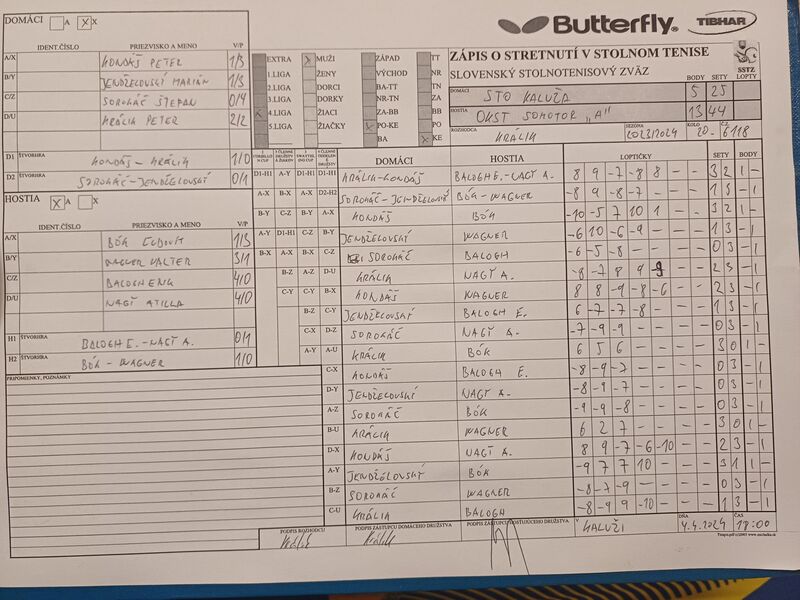 DOMÁCI A X
Butterfly TIBHAR
IDENT.ČÍSLO PRIEZVISKO A MENO V/P
A/X KONDÁŠ PETER 1/3
B/Y JENDŽELOVSKÝ MARIÁN 1/3
C/Z SOROKÁČ ŠTEFAN 0/4
D/U KRÁLIK PETER 2/2
D1 ŠTVORHRA KONDÁŠ - KRÁLIK 1/0
D2 ŠTVORHRA SOROKÁČ-JENDŽELOVSKÝ 0/1
HOSTIA A X
IDENT.ČÍSLO PRIEZVISKO A MENO V/P
A/X BÓK ĽUDOVÍT 1/3
B/Y WAGNER VALTER 3/1
C/Z BALOGH ERIK 4/0
D/U NAGY ATILLA 4/0
H1 ŠTVORHRA BALOGH E. - NAGY A. 0/1
H2 ŠTVORHRA BÓK - WAGNER 1/0
PRIPOMIENKY, POZNÁMKY
EXTRA MUŽI ZÁPAD TT
1.LIGA ŽENY VÝCHOD NR
2.LIGA DORCI BA-TT TN
3.LIGA DORKY NR-TN ZA
4.LIGA ŽIACI ZA-BB BB
5.LIGA ŽIAČKY PO-KE PO
BA KE
ZÁPIS O STRETNUTÍ V STOLNOM TENISE
SLOVENSKÝ STOLNOTENISOVÝ ZVÄZ
SSTZ
BODY SETY LOPTY
DOMÁCI STO KALUŽA 5 25
HOSTIA OKST SOMOTOR "A" 13 44
ROZHODCA KRÁLIK SEZÓNA 2023/2024 KOLO 20. Č.Z. 6118
DOMÁCI HOSTIA LOPTIČKY SETY BODY
D1-H1 A-Y D1-H1 D1-H1 KRÁLIK-KONDÁŠ BALOGH E.-NAGY A. 8 9 -7 -8 8 - - 3 2 1 -
A-X B-X A-X D2-H2 SOROKÁČ-JENDŽELOVSKÝ BÓK-WAGNER -8 9 -8 -7 - - - 1 3 - 1
B-Y C-Z B-Y A-X KONDÁŠ BÓK -10 -5 7 10 1 - - 3 2 1 -
A-Y D1-H1 C-Z B-Y JENDŽELOVSKÝ WAGNER -6 10 -6 -9 - - - 1 3 - 1
B-X A-X B-X C-Z SOROKÁČ BALOGH -6 -5 -8 - - - - 0 3 - 1
B-Z A-Z D-U KRÁLIK NAGY A. -8 -7 8 9 -9 - - 2 3 - 1
C-Y C-Y B-X KONDÁŠ WAGNER 8 8 -9 -8 -6 - - 2 3 - 1
B-Z C-Y JENDŽELOVSKÝ BALOGH E. 6 -7 -7 -8 - - - 1 3 - 1
C-X D-Z SOROKÁČ NAGY A. -7 -9 -9 - - - - 0 3 - 1
A-Y A-U KRÁLIK BÓK 6 5 6 - - - - 3 0 1 -
C-X KONDÁŠ BALOGH E. -8 -9 -7 - - - - 0 3 - 1
D-Y JENDŽELOVSKÝ NAGY A. -8 -9 -7 - - - - 0 3 - 1
A-Z SOROKÁČ BÓK -9 -9 -8 - - - - 0 3 - 1
B-U KRÁLIK WAGNER 6 2 7 - - - - 3 0 1 -
D-X KONDÁŠ NAGY A. 8 9 -7 -6 -10 - - 2 3 - 1
A-Y JENDŽELOVSKÝ BÓK -9 7 7 10 - - - 3 1 1 -
B-Z SOROKÁČ WAGNER -8 -7 -9 - - - - 0 3 - 1
C-U KRÁLIK BALOGH -8 -9 9 -10 - - - 1 3 - 1
PODPIS ROZHODCU PODPIS ZÁSTUPCU DOMÁCEHO DRUŽSTVA PODPIS ZÁSTUPCU HOSŤUJÚCEHO DRUŽSTVA V KALUŽI DŇA 4.4.2024 ČAS 18:00